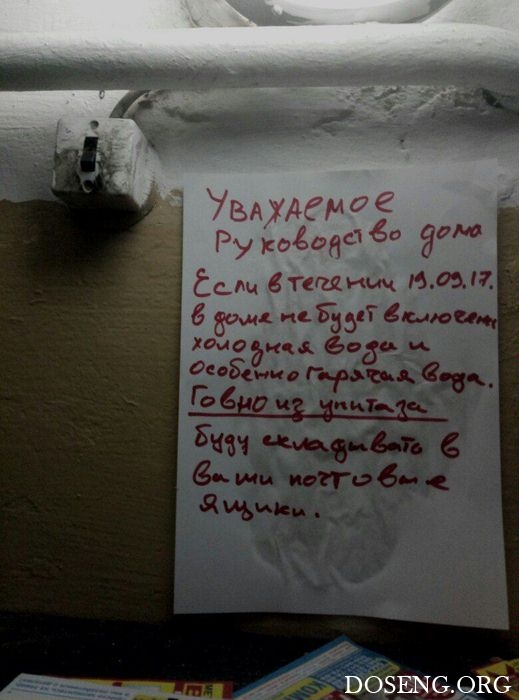 УВАЖАЕМОЕ
РУКОВОДСТВО дома
Если в течении 19.09.17.
в доме не будет включена
холодная вода и
особенно гарячая вода.
Говно из унитаза
буду складывать в
ваши почтовые
ящики.
DOSENG.ORG